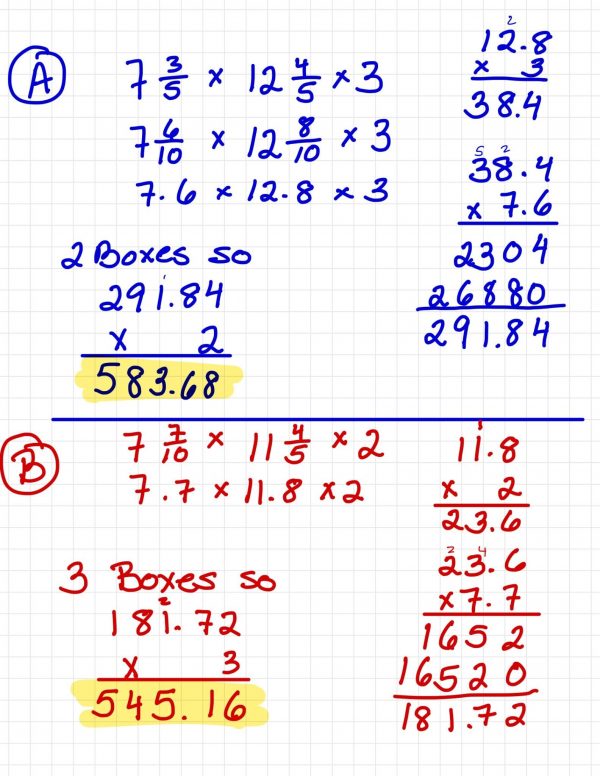 A
7 3/5 × 12 4/5 × 3
7 6/10 × 12 8/10 × 3
7.6 × 12.8 × 3
2
12.8
× 3
38.4
5 2
38.4
× 7.6
2304
26880
291.84
2 Boxes so
1
291.84
× 2
583.68
B
7 7/10 × 11 4/5 × 2
7.7 × 11.8 × 2
1
11.8
× 2
23.6
2 4
23.6
×7.7
1652
16520
181.72
3 Boxes so
2
181.72
× 3
545.16